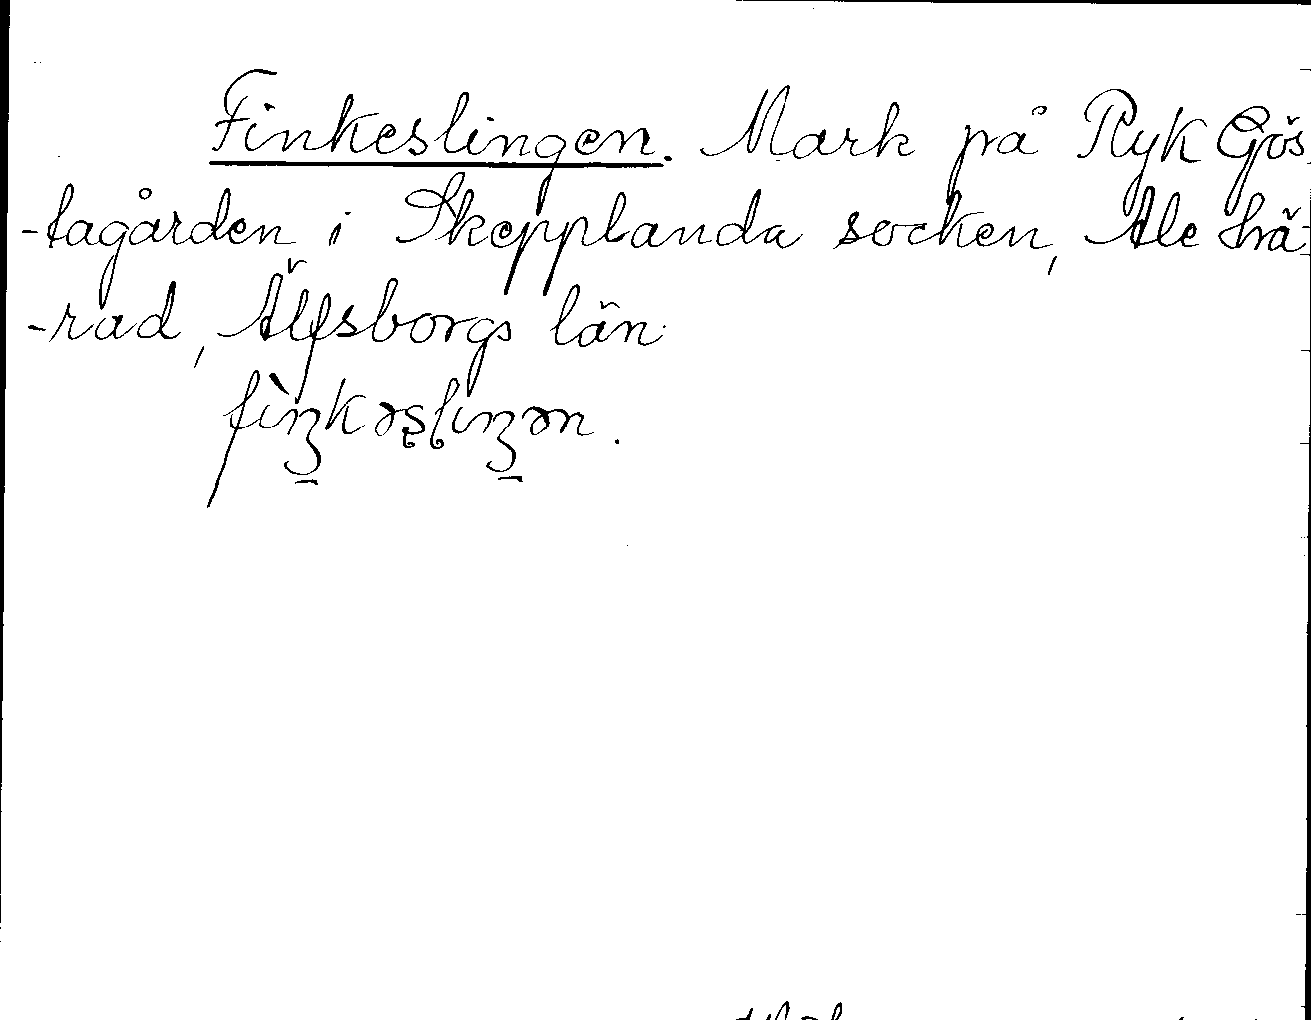 Finkeslingen. Mark på Ryk Gös
-tagården i Skepplanda socken, Ale hä-
-rad, Älfsborgs län